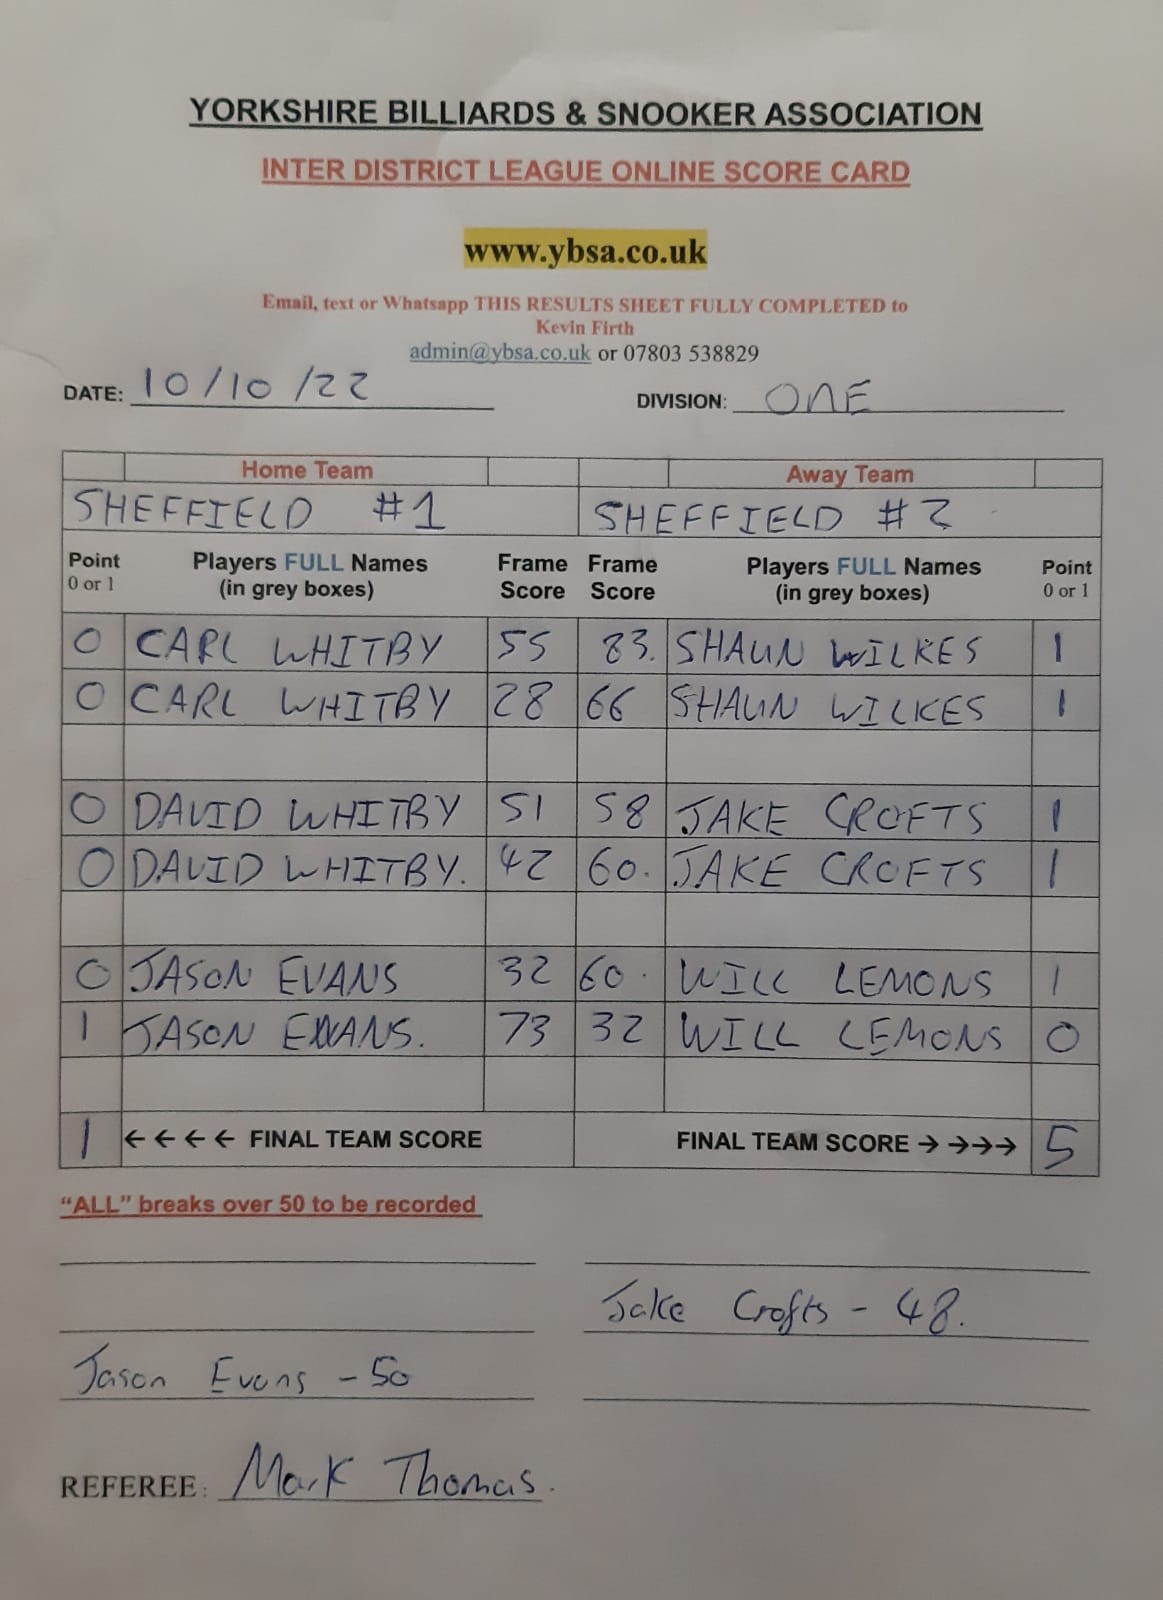 YORKSHIRE BILLIARDS & SNOOKER ASSOCIATION
INTER DISTRICT LEAGUE ONLINE SCORE CARD
www.ybsa.co.uk
Email, text or Whatsapp THIS RESULTS SHEET FULLY COMPLETED to
Kevin Firth
admin@ybsa.co.uk or 07803 538829
DATE: 10/10/22 DIVISION: ONE
Home Team Away Team
SHEFFIELD #1 SHEFFIELD #2
Point Players FULL Names Frame Frame Players FULL Names Point
0 or 1 (in grey boxes) Score Score (in grey boxes) 0 or 1
0 CARL WHITBY 55 83. SHAUN WILKES 1
0 CARL WHITBY 28 66 SHAUN WILKES 1
0 DAVID WHITBY 51 58 JAKE CROFTS 1
0 DAVID WHITBY. 42 60. JAKE CROFTS 1
0 JASON EVANS 32 60. WILL LEMONS 1
1 JASON EVANS. 73 32 WILL LEMONS 0
1 ←←←← FINAL TEAM SCORE FINAL TEAM SCORE →→→→ 5
“ALL” breaks over 50 to be recorded
Jake Crofts - 48.
Jason Evans - 50
REFEREE: Mark Thomas.